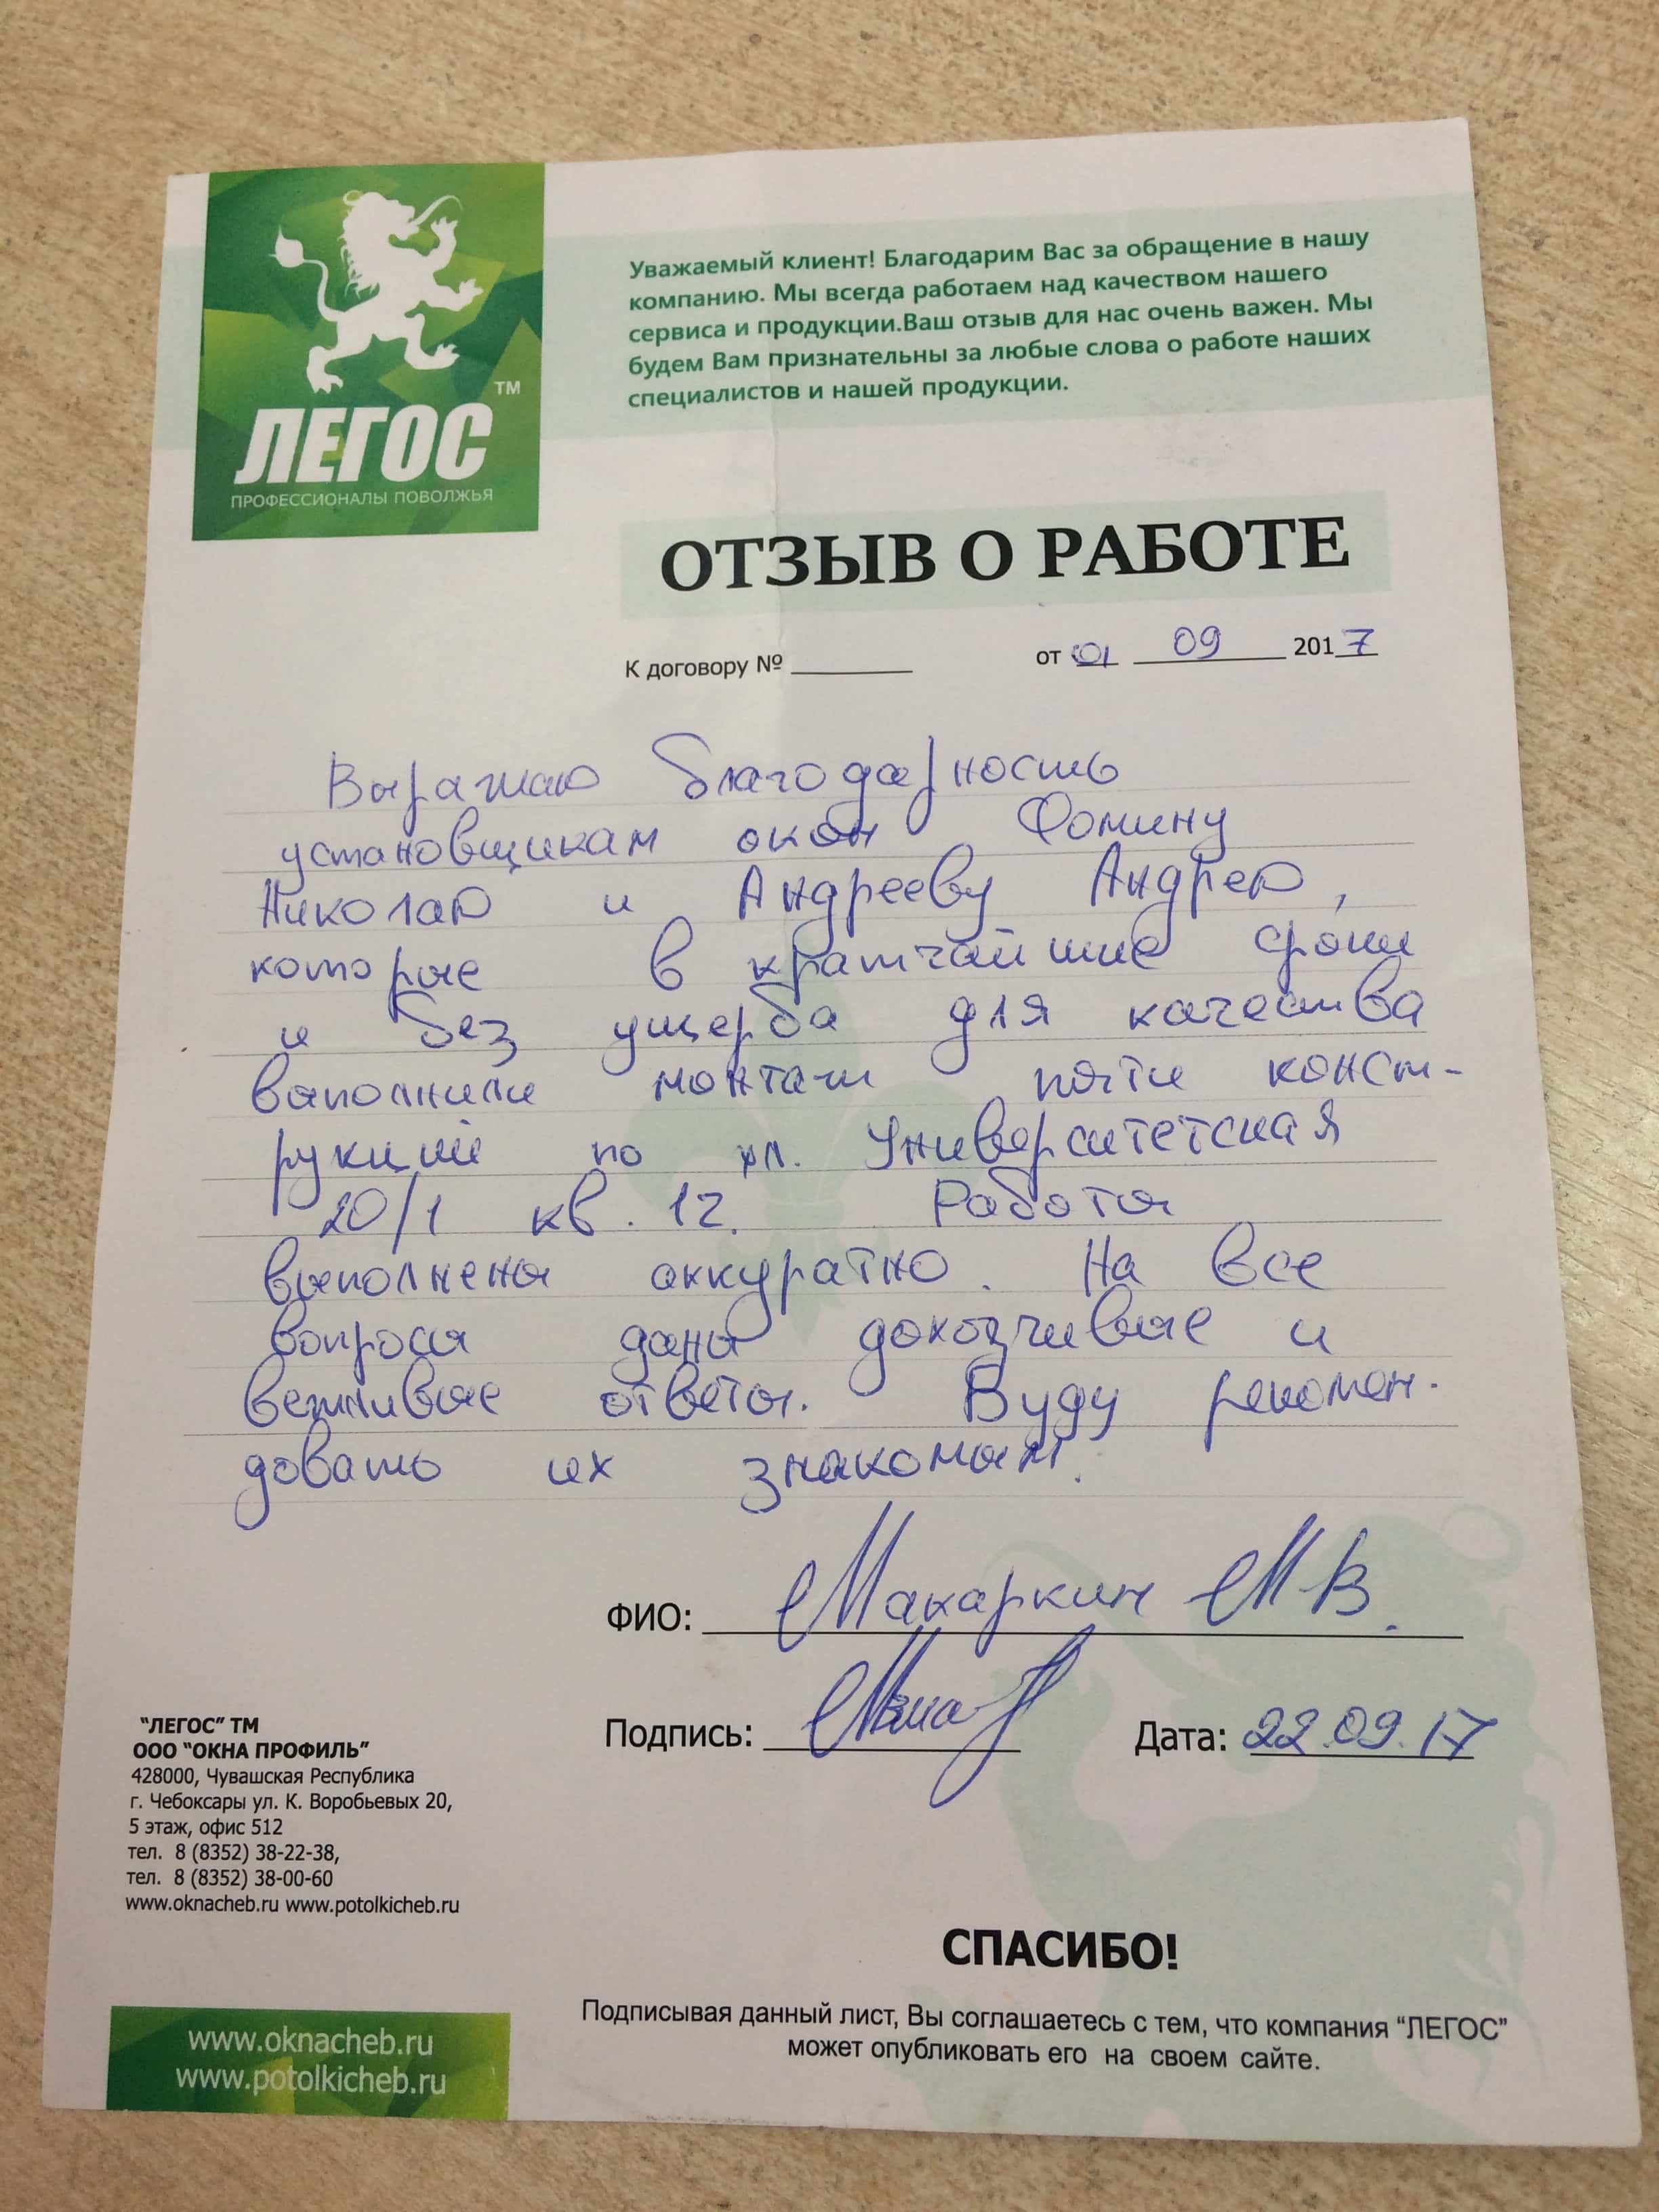 ЛЕГОС ТМ
ПРОФЕССИОНАЛЫ ПОВОЛЖЬЯ
Уважаемый клиент! Благодарим Вас за обращение в нашу
компанию. Мы всегда работаем над качеством нашего
сервиса и продукции.Ваш отзыв для нас очень важен. Мы
будем Вам признательны за любые слова о работе наших
специалистов и нашей продукции.
ОТЗЫВ О РАБОТЕ
К договору № от 01 09 2017
Выражаю благодарность
установщикам окон Фомину
Николаю и Андрееву Андрею,
которые в кратчайшие сроки
и без ущерба для качества
выполнили монтаж пяти конст-
рукций по ул. Университетская
20/1 кв. 12. Работа
выполнена аккуратно. На все
вопросы даны доходчивые и
вежливые ответы. Буду рекомен-
довать их знакомым.
ФИО: Макаркин М В.
Подпись: Дата: 22.09.17
"ЛЕГОС" ТМ
ООО "ОКНА ПРОФИЛЬ"
428000, Чувашская Республика
г. Чебоксары ул. К. Воробьевых 20,
5 этаж, офис 512
тел. 8 (8352) 38-22-38,
тел. 8 (8352) 38-00-60
www.oknacheb.ru www.potolkicheb.ru
СПАСИБО!
Подписывая данный лист, Вы соглашаетесь с тем, что компания "ЛЕГОС"
может опубликовать его на своем сайте.
www.oknacheb.ru
www.potolkicheb.ru